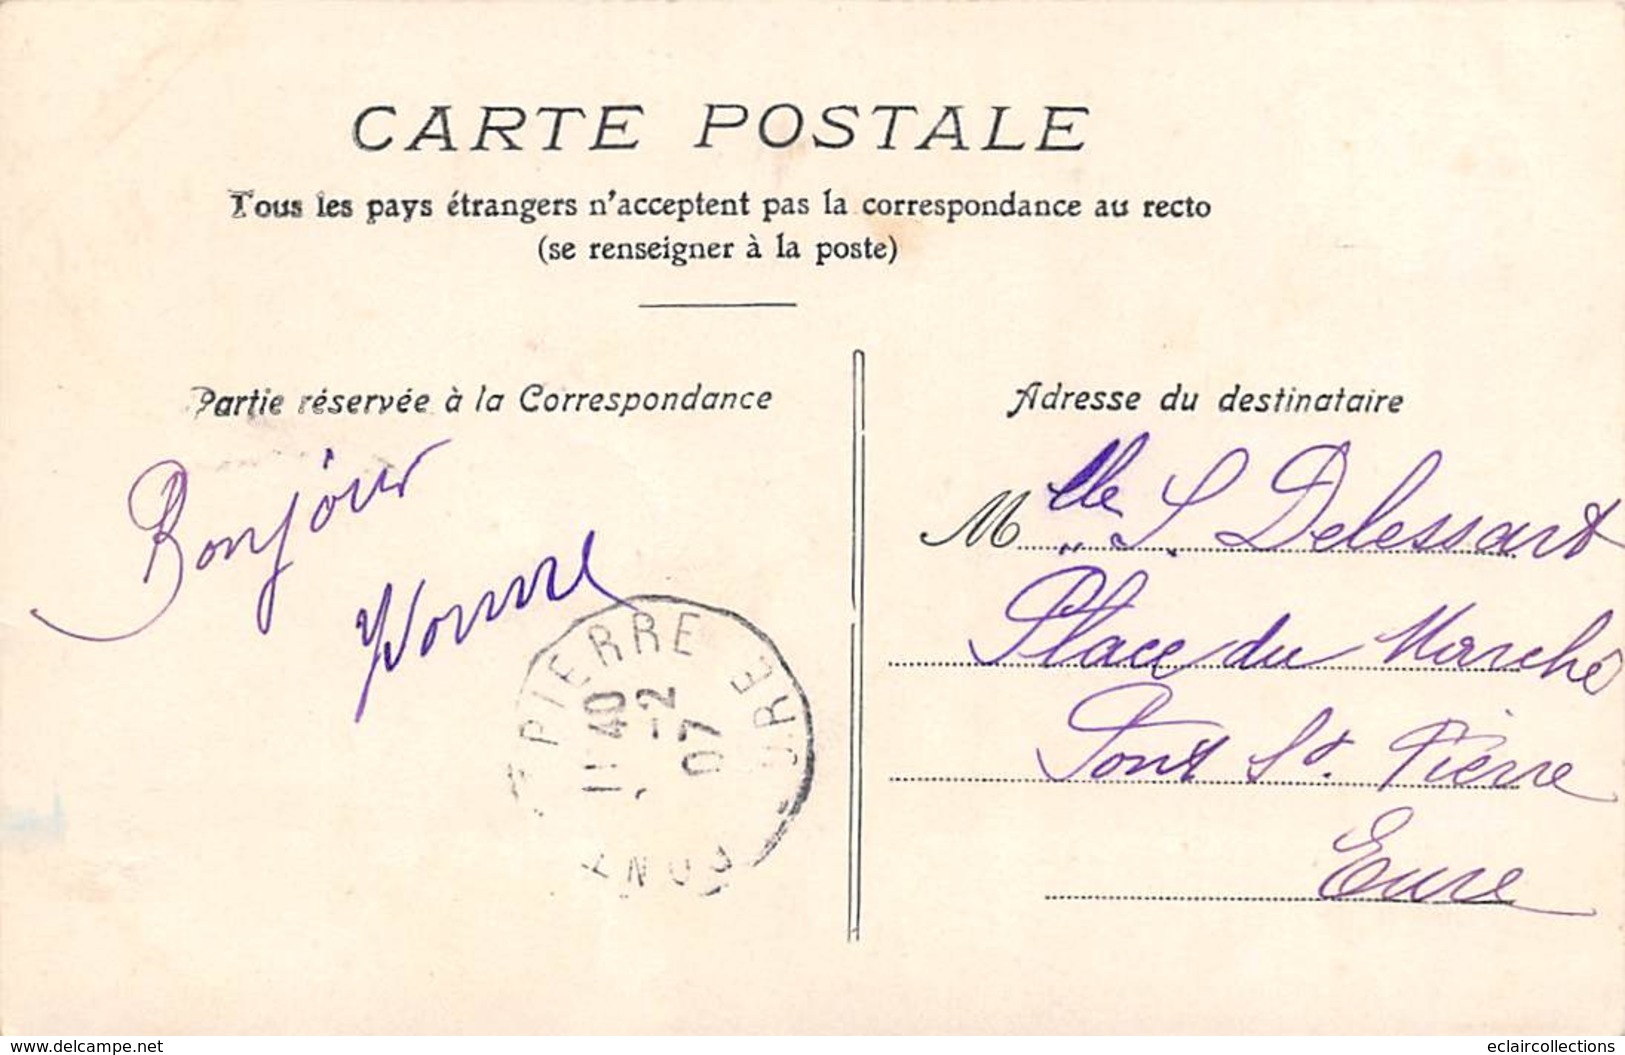 CARTE POSTALE
Tous les pays étrangers n'acceptent pas la correspondance au recto
(se renseigner à la poste)
Partie réservée à la Correspondance
Bonjour
Yvonne
PONT-ST PIERRE EURE
11 40
-2
07
Adresse du destinataire
Mlle S. Delessart
Place du Marché
Pont St. Pierre
Eure
www.delcampe.net
eclaircollections